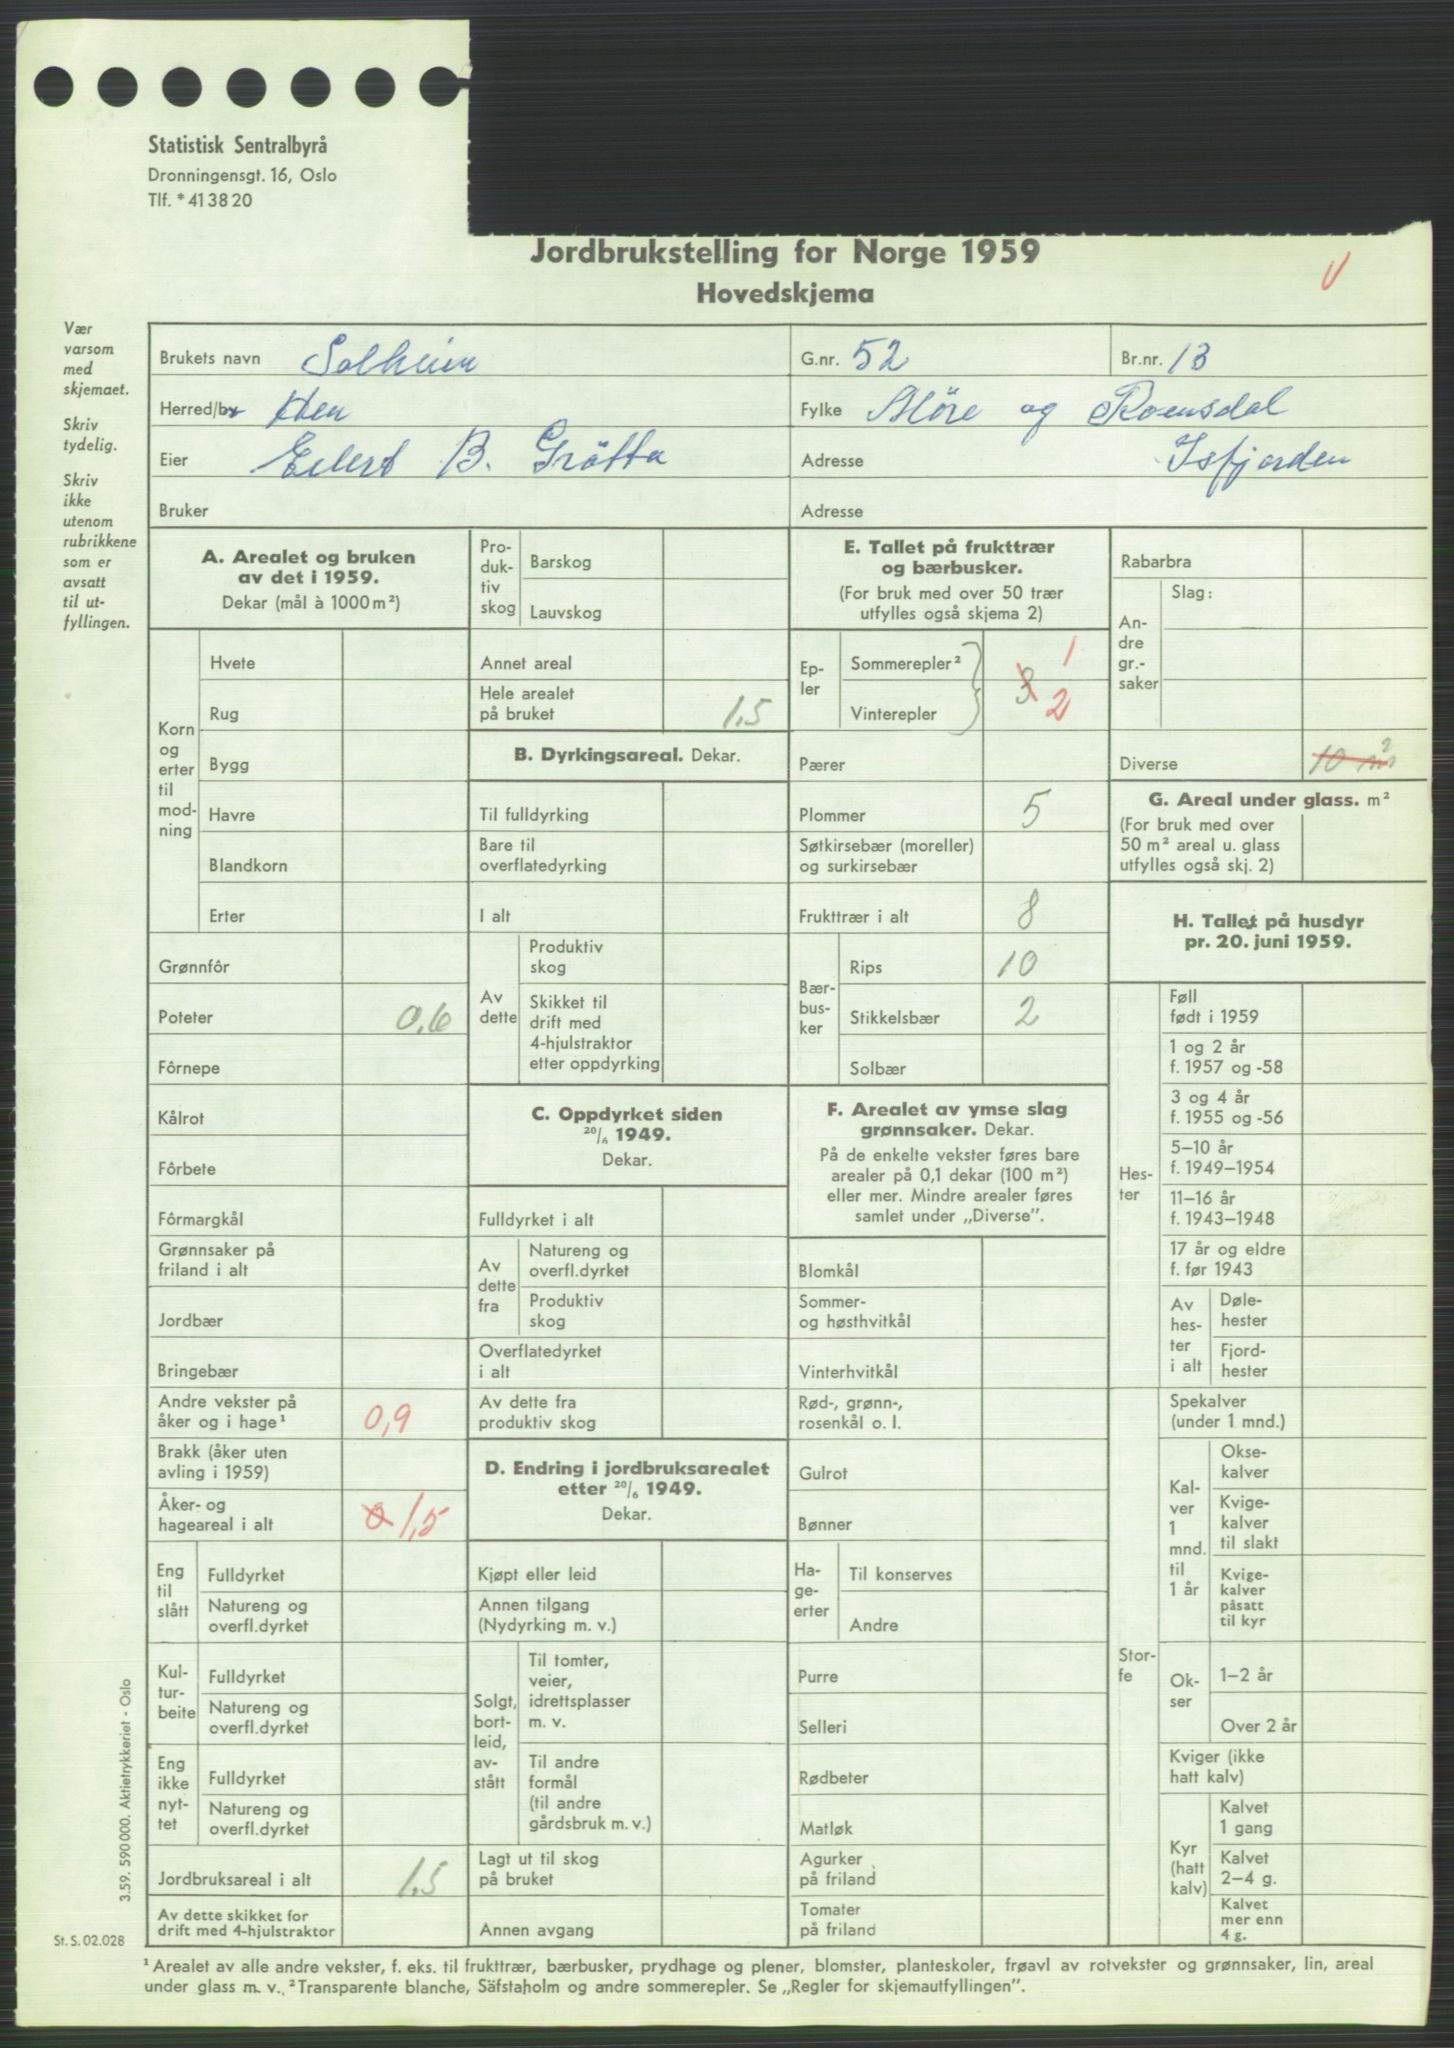 Statistisk Sentralbyrå
Dronningensgt. 16, Oslo
Tlf. * 41 38 20
Jordbrukstelling for Norge 1959
Hovedskjema
Vær
varsom
med
skjemaet.
Skriv
tydelig.
Skriv
ikke
utenom
rubrikkene
som er
avsatt
til ut-
fyllingen.
Brukets navn Solheim G.nr. 52 Br.nr. 13
Herred/by Hen Fylke Møre og Romsdal
Eier Eilert B. Grötta Adresse Isfjorden
Bruker Adresse
A. Arealet og bruken
av det i 1959.
Dekar (mål à 1000 m²)
Korn
og
erter
til
mod-
ning
Hvete
Rug
Bygg
Havre
Blandkorn
Erter
Grønnfôr
Poteter 0,6
Fôrnepe
Kålrot
Fôrbete
Fôrmargkål
Grønnsaker på
friland i alt
Jordbær
Bringebær
Andre vekster på
åker og i hage¹ 0,9
Brakk (åker uten
avling i 1959)
Åker- og
hageareal i alt 0 1,5
Eng
til
slått
Fulldyrket
Natureng og
overfl.dyrket
Kul-
tur-
beite
Fulldyrket
Natureng og
overfl.dyrket
Eng
ikke
nyt-
tet
Fulldyrket
Natureng og
overfl.dyrket
Jordbruksareal i alt 1,5
Av dette skikket for
drift med 4-hjulstraktor
Pro-
duk-
tiv
skog
Barskog
Lauvskog
Annet areal
Hele arealet
på bruket 1,5
B. Dyrkingsareal. Dekar.
Til fulldyrking
Bare til
overflatedyrking
I alt
Av
dette
Produktiv
skog
Skikket til
drift med
4-hjulstraktor
etter oppdyrking
C. Oppdyrket siden
20/6 1949.
Dekar.
Fulldyrket i alt
Av
dette
fra
Natureng og
overfl.dyrket
Produktiv
skog
Overflatedyrket
i alt
Av dette fra
produktiv skog
D. Endring i jordbruksarealet
etter 20/6 1949.
Dekar.
Kjøpt eller leid
Annen tilgang
(Nydyrking m. v.)
Solgt,
bort-
leid,
av-
stått
Til tomter,
veier,
idrettsplasser
m. v.
Til andre
formål
(til andre
gårdsbruk m. v.)
Lagt ut til skog
på bruket
Annen avgang
E. Tallet på frukttrær
og bærbusker.
(For bruk med over 50 trær
utfylles også skjema 2)
Ep-
ler
Sommerepler² 1
3
Vinterepler 2
Pærer
Plommer 5
Søtkirsebær (moreller)
og surkirsebær
Frukttrær i alt 8
Bær-
bus-
ker
Rips 10
Stikkelsbær 2
Solbær
F. Arealet av ymse slag
grønnsaker. Dekar.
På de enkelte vekster føres bare
arealer på 0,1 dekar (100 m²)
eller mer. Mindre arealer føres
samlet under „Diverse”.
Blomkål
Sommer-
og høsthvitkål
Vinterhvitkål
Rød-, grønn-,
rosenkål o. l.
Gulrot
Bønner
Ha-
ge-
erter
Til konserves
Andre
Purre
Selleri
Rødbeter
Matløk
Agurker
på friland
Tomater
på friland
Rabarbra
An-
dre
gr.-
saker
Slag:
Diverse 10 m²
G. Areal under glass. m²
(For bruk med over
50 m² areal u. glass
utfylles også skj. 2)
H. Tallet på husdyr
pr. 20. juni 1959.
Hes-
ter
Føll
født i 1959
1 og 2 år
f. 1957 og -58
3 og 4 år
f. 1955 og -56
5–10 år
f. 1949–1954
11–16 år
f. 1943–1948
17 år og eldre
f. før 1943
Av
hes-
ter
i alt
Døle-
hester
Fjord-
hester
Stor-
fe
Spekalver
(under 1 mnd.)
Kal-
ver
1
mnd.
til
1 år
Okse-
kalver
Kvige-
kalver
til slakt
Kvige-
kalver
påsatt
til kyr
Ok-
ser
1–2 år
Over 2 år
Kviger (ikke
hatt kalv)
Kyr
(hatt
kalv)
Kalvet
1 gang
Kalvet
2–4 g.
Kalvet
mer enn
4 g.
3.59. 590 000. Aktietrykkeriet - Oslo
St. S. 02.028
¹ Arealet av alle andre vekster, f. eks. til frukttrær, bærbusker, prydhage og plener, blomster, planteskoler, frøavl av rotvekster og grønnsaker, lin, areal
under glass m. v. ² Transparente blanche, Säfstaholm og andre sommerepler. Se „Regler for skjemautfyllingen”.